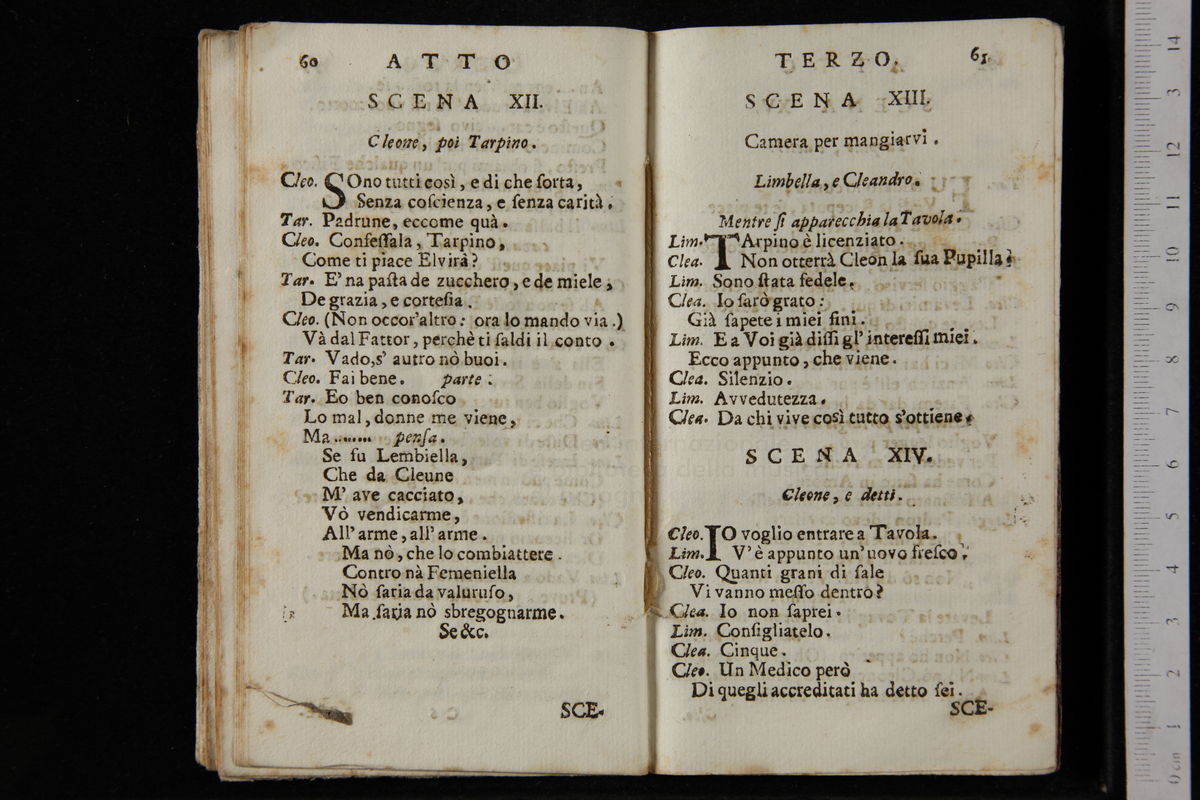 60 ATTO
SCENA XII.
Cleone, poi Tarpino.
Cleo. SOno tutti così, e di che ſorta,
Senza coſcienza, e ſenza carità.
Tar. Padrune, eccome quà.
Cleo. Confeſſala, Tarpino,
Come ti piace Elvira?
Tar. E' na paſta de zucchero, e de miele,
De grazia, e corteſia.
Cleo. (Non occor'altro: ora lo mando via.)
Và dal Fattor, perchè ti ſaldi il conto.
Tar. Vado, s' autro nò buoi.
Cleo. Fai bene. parte.
Tar. Eo ben conoſco
Lo mal, donne me viene,
Ma ........ penſa.
Se fu Lembiella,
Che da Cleune
M' ave cacciato,
Vò vendicarme,
All' arme, all' arme.
Ma nò, che lo combiattere.
Contro nà Femeniella
Nò ſaria da valuruſo,
Ma ſaria nò sbregognarme.
Se &c.
SCE-
TERZO. 61
SCENA XIII.
Camera per mangiarvi.
Limbella, e Cleandro.
Mentre ſi apparecchia la Tavola.
Lim. TArpino è licenziato.
Clea. Non otterrà Cleon la ſua Pupilla?
Lim. Sono ſtata fedele.
Clea. Io ſarò grato:
Già ſapete i miei fini.
Lim. E a Voi già diſſi gl' intereſſi miei.
Ecco appunto, che viene.
Clea. Silenzio.
Lim. Avvedutezza.
Clea. Da chi vive così tutto s'ottiene.
SCENA XIV.
Cleone, e detti.
Cleo. IO voglio entrare a Tavola.
Lim. V' è appunto un' uovo freſco.
Cleo. Quanti grani di ſale
Vi vanno meſſo dentro?
Clea. Io non ſaprei.
Lim. Conſigliatelo.
Clea. Cinque.
Cleo. Un Medico però
Di quegli accreditati ha detto ſei.
SCE-
14
13
12
11
10
9
8
7
6
5
4
3
2
1
0 cm